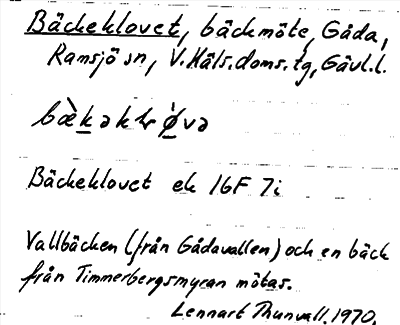 Bäckeklovet, bäckmöte, Gåda,
Ramsjö sn, V.Häls.doms.tg, Gävl.l.
Bäckeklovet ek 16F 7i
Vallbäcken (från Gådavallen) och en bäck
från Timmerbergsmyran mötas.
Lennart Thunvall. 1970.